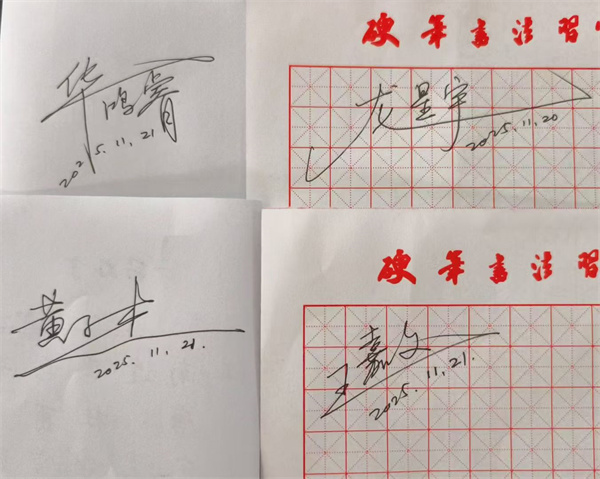 华鸿霄
2025.11.21
硬笔书法习
龙星宇
2025.11.20
黄子牛
2025.11.21.
硬笔书法习
王嘉文
2025.11.21.